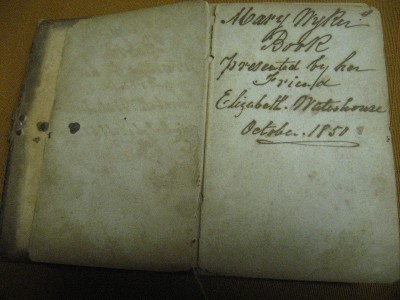 Mary Wykes's
Book
presented by her
Friend
Elizabeth Waterhouse
October 1850